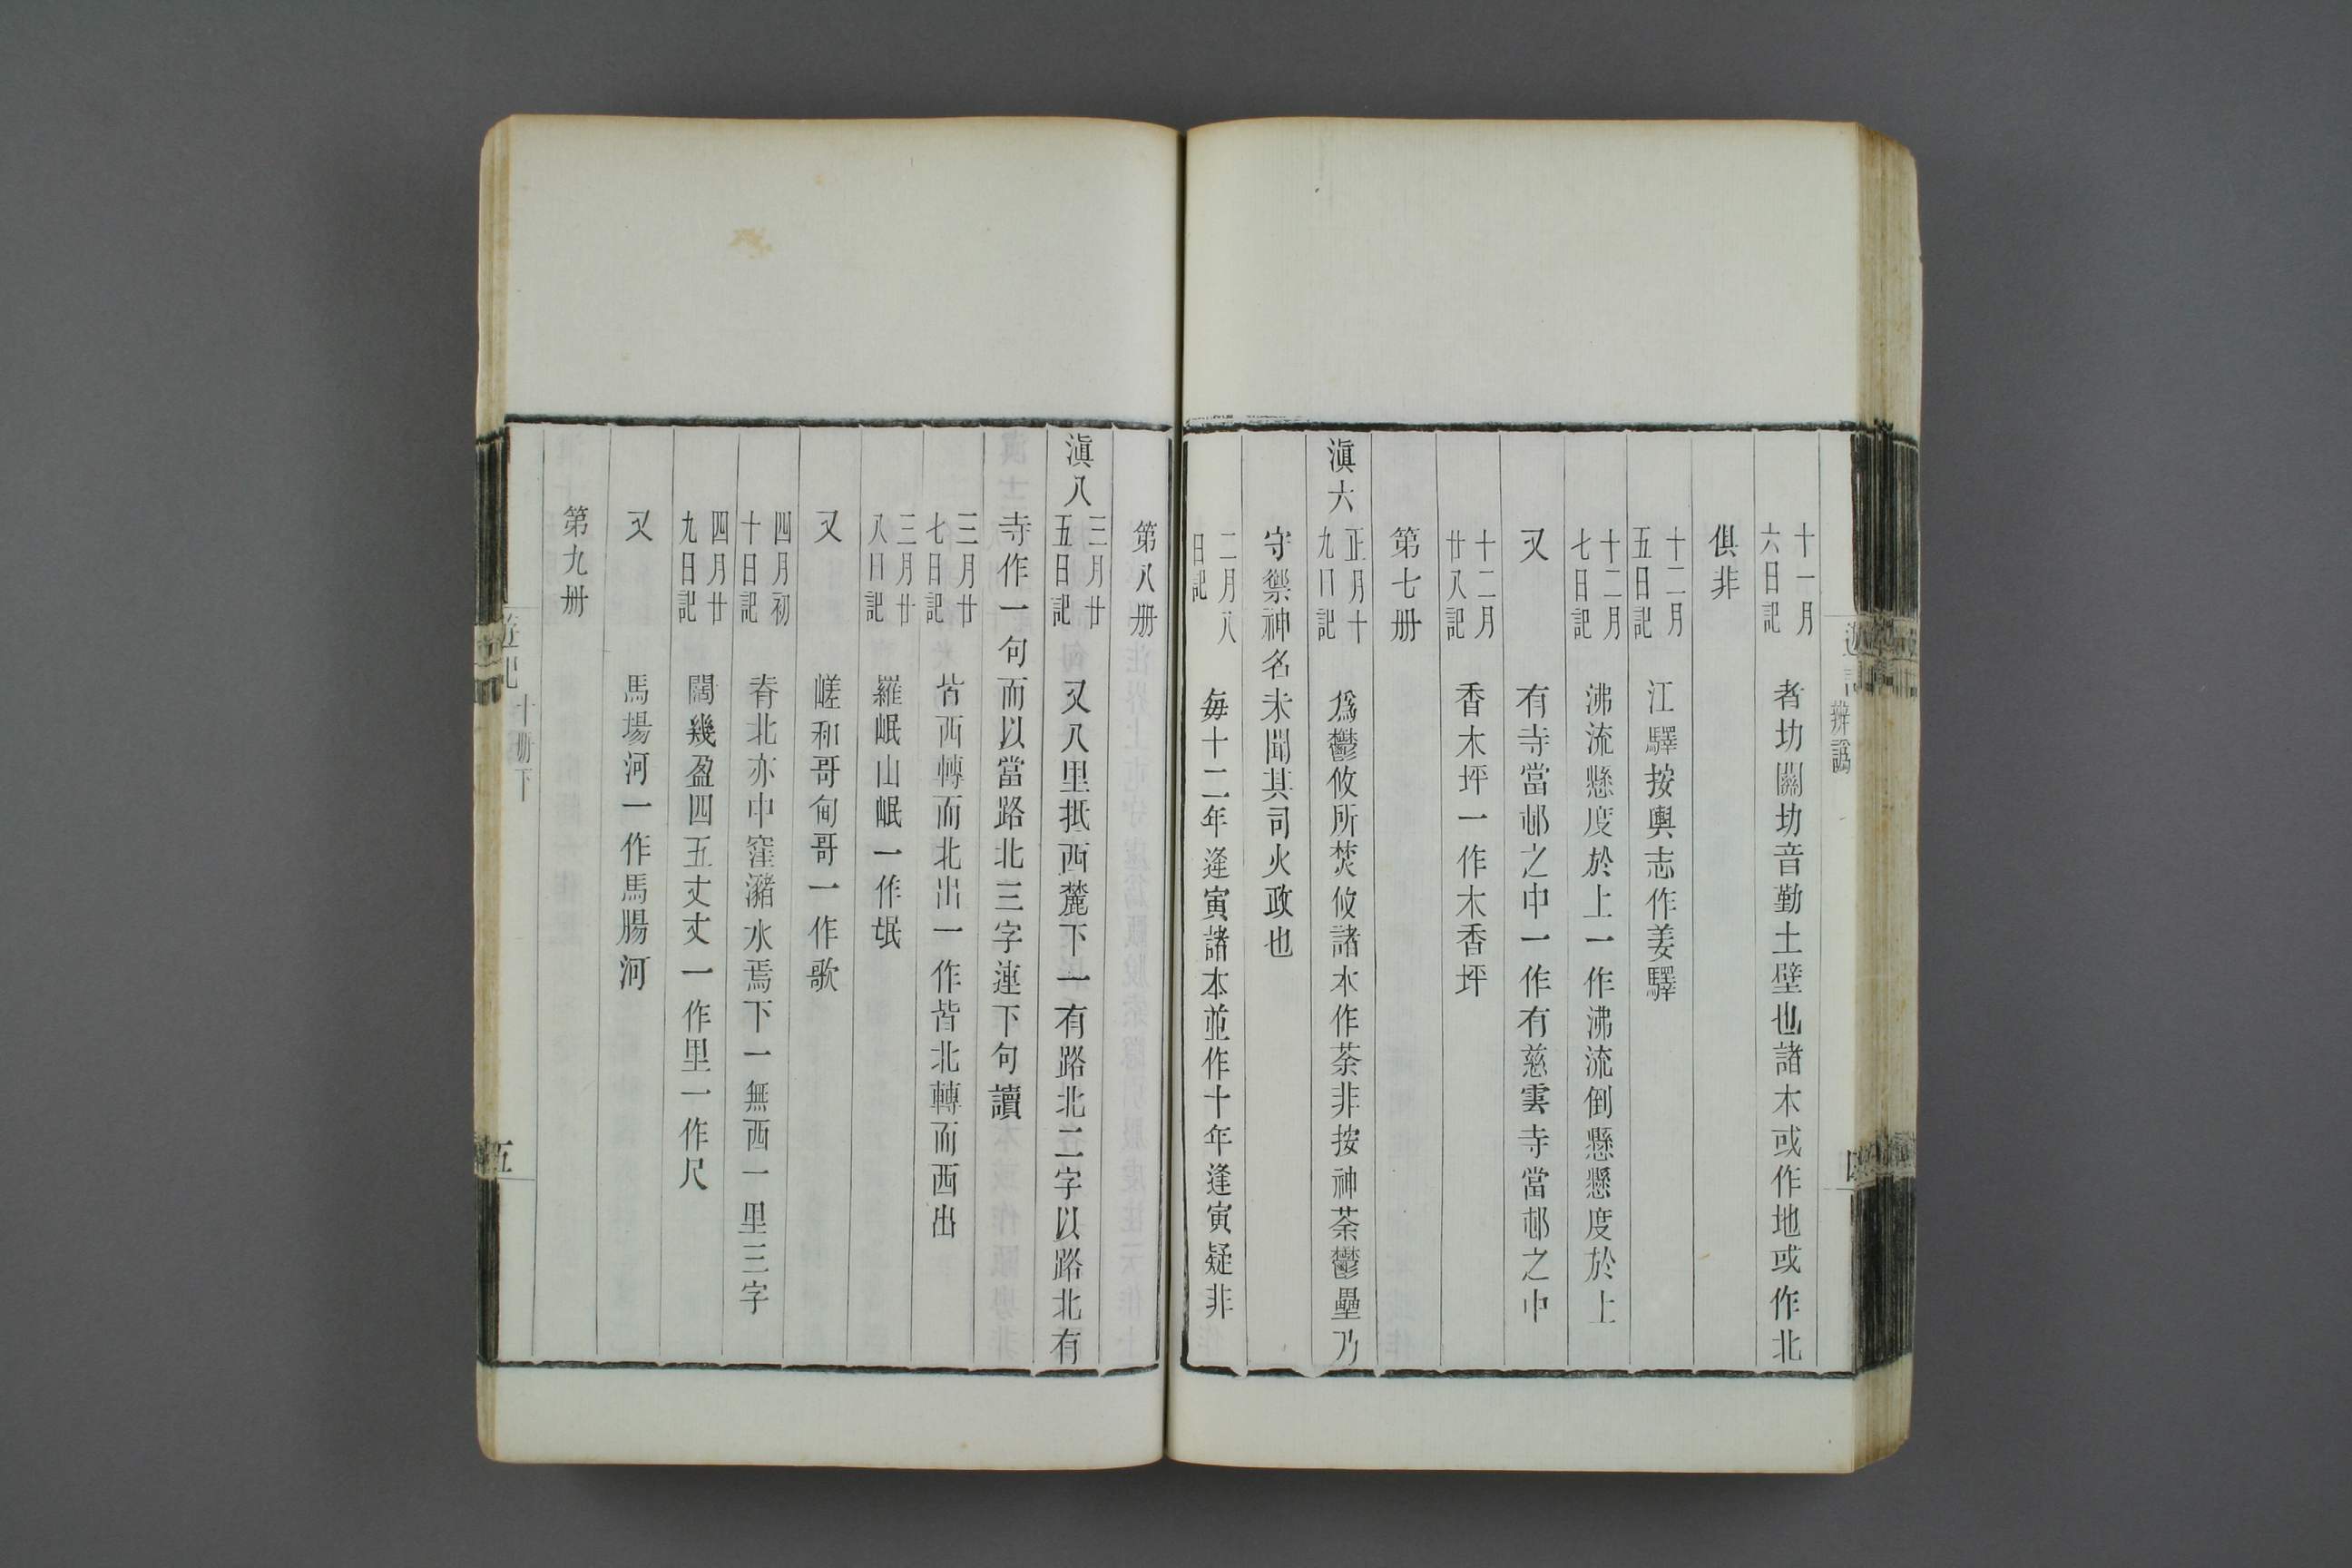 遊記 辨譌
十一月六日記 者圽關圽音勤土壁也諸本或作地或作北
俱非
十二月五日記 江驛按輿志作姜驛
十二月七日記 沸流懸度於上一作沸流倒懸懸度於上
又 有寺當邨之中一作有慈雲寺當邨之中
十二月廿八記 香木坪一作木香坪
第七册
滇六 正月十九日記 爲鬱攸所焚攸諸本作荼非按神荼鬱壘乃
守禦神名未聞其司火政也
二月八日記 每十二年逢寅諸本並作十年逢寅疑非
第八册
滇八 三月廿五日記 又八里抵西麓下一有路北二字以路北有
寺作一句而以當路北三字連下句讀
三月廿七日記 皆西轉而北出一作皆北轉而西出
三月廿八日記 羅岷山岷一作氓
又 嵯和哥甸哥一作歌
四月初十日記 脊北亦中窪瀦水焉下一無西一里三字
四月廿九日記 闊幾盈四五丈丈一作里一作尺
又 馬場河一作馬腸河
第九册
遊記 十册下
五